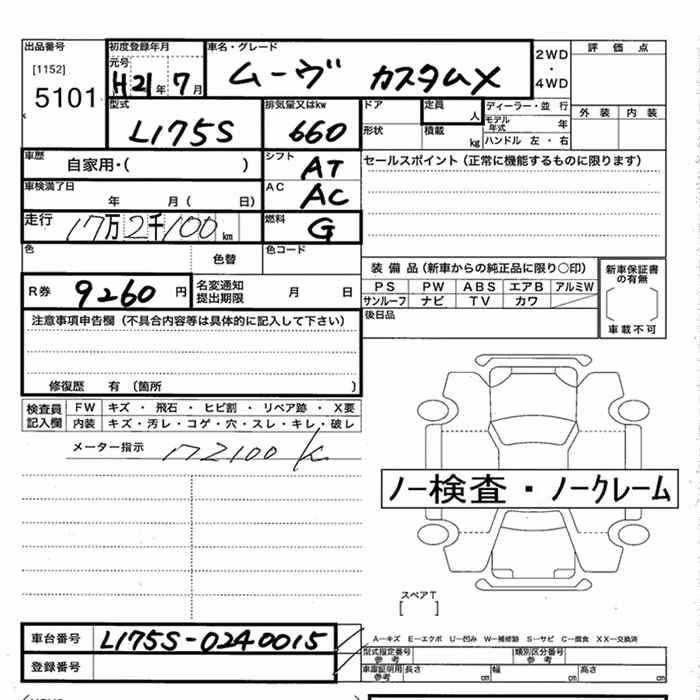 出品番号
[1152]
5101
初度登録年月
元号
H21年 7月
車名・グレード
ムーヴ カスタムX
2WD
・
4WD
評価点
外装 内装
型式
L175S
排気量又はkw
660
ドア
形状
定員
人
積載
kg
ディーラー・並行
モデル年式 年
ハンドル 左・右
車歴
自家用・( )
シフト
AT
車検満了日
年 月( 日)
AC
AC
走行
17万2千100km
燃料
G
セールスポイント(正常に機能するものに限ります)
色
色替
色コード
R券 9260円
名変通知
提出期限
月 日
装備品(新車からの純正品に限り○印)
PS PW ABS エアB アルミW
サンルーフ ナビ TV カワ
後日品
新車保証書
の有無
車載不可
注意事項申告欄(不具合内容等は具体的に記入して下さい)
修復歴 有 (箇所 )
検査員
記入欄
FW キズ・飛石・ヒビ割・リペア跡・X要
内装 キズ・汚レ・コゲ・穴・スレ・キレ・破レ
メーター指示 172100K
ノー検査・ノークレーム
スペアT
[ ]
車台番号 L175S-0240015
登録番号
A−キズ E−エクボ U−凹み W−補修跡 S−サビ C−腐食 XX−交換済
型式指定番号
参考
類別区分番号
参考
車庫証明用
参考
長さ cm 幅 cm 高さ cm